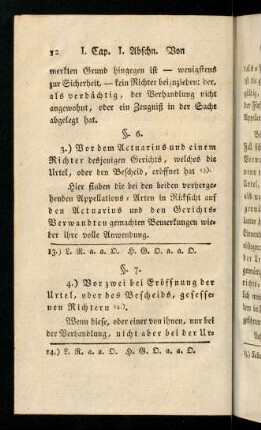 12 I. Cap. I. Abschn. Von
merkten Grund hingegen ist — wenigstens
zur Sicherheit, — kein Richter beizuziehen: der,
als verdächtig, der Verhandlung nicht
angewohnt, oder ein Zeugniß in der Sache
abgelegt hat.
§. 6.
3.) Vor dem Actuarius und einem
Richter desjenigen Gerichts, welches die
Urtel, oder den Bescheid, eröffnet hat 13).
Hier finden die bei den beiden vorherge-
henden Appellations-Arten in Rücksicht auf
den Actuarius und den Gerichts-
Verwandten gemachten Bemerkungen wie-
der ihre volle Anwendung.
13.) L. R. a. a. O. H. G. O. a. a. O.
§. 7.
4.) Vor zwei bei Eröffnung der
Urtel, oder des Bescheids, gesesse-
nen Richtern 14.).
Wenn diese, oder einer von ihnen, nur bei
der Verhandlung, nicht aber bei der Ur-
14.) L. R. a. a. O. H. G. O. a. a. O.